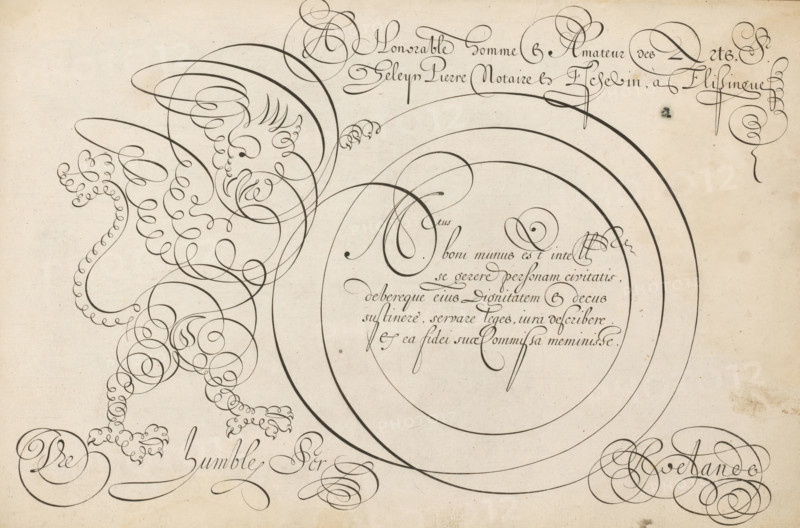 A Honorable homme & Amateur des Arts, Sr.
Geleyn Pierre Notaire & Eschevin, à Flissingue
Meus
boni munus est intelligere
se gerere personam civitatis,
debereque eius Dignitatem & decus
sustinere, servare leges, iura describere,
& ea fidei suæ Commissa meminisse.
Vre humble Ser
Roelands